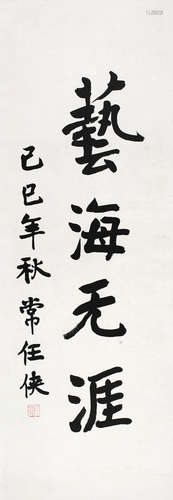 藝海无涯
己巳年秋常任侠